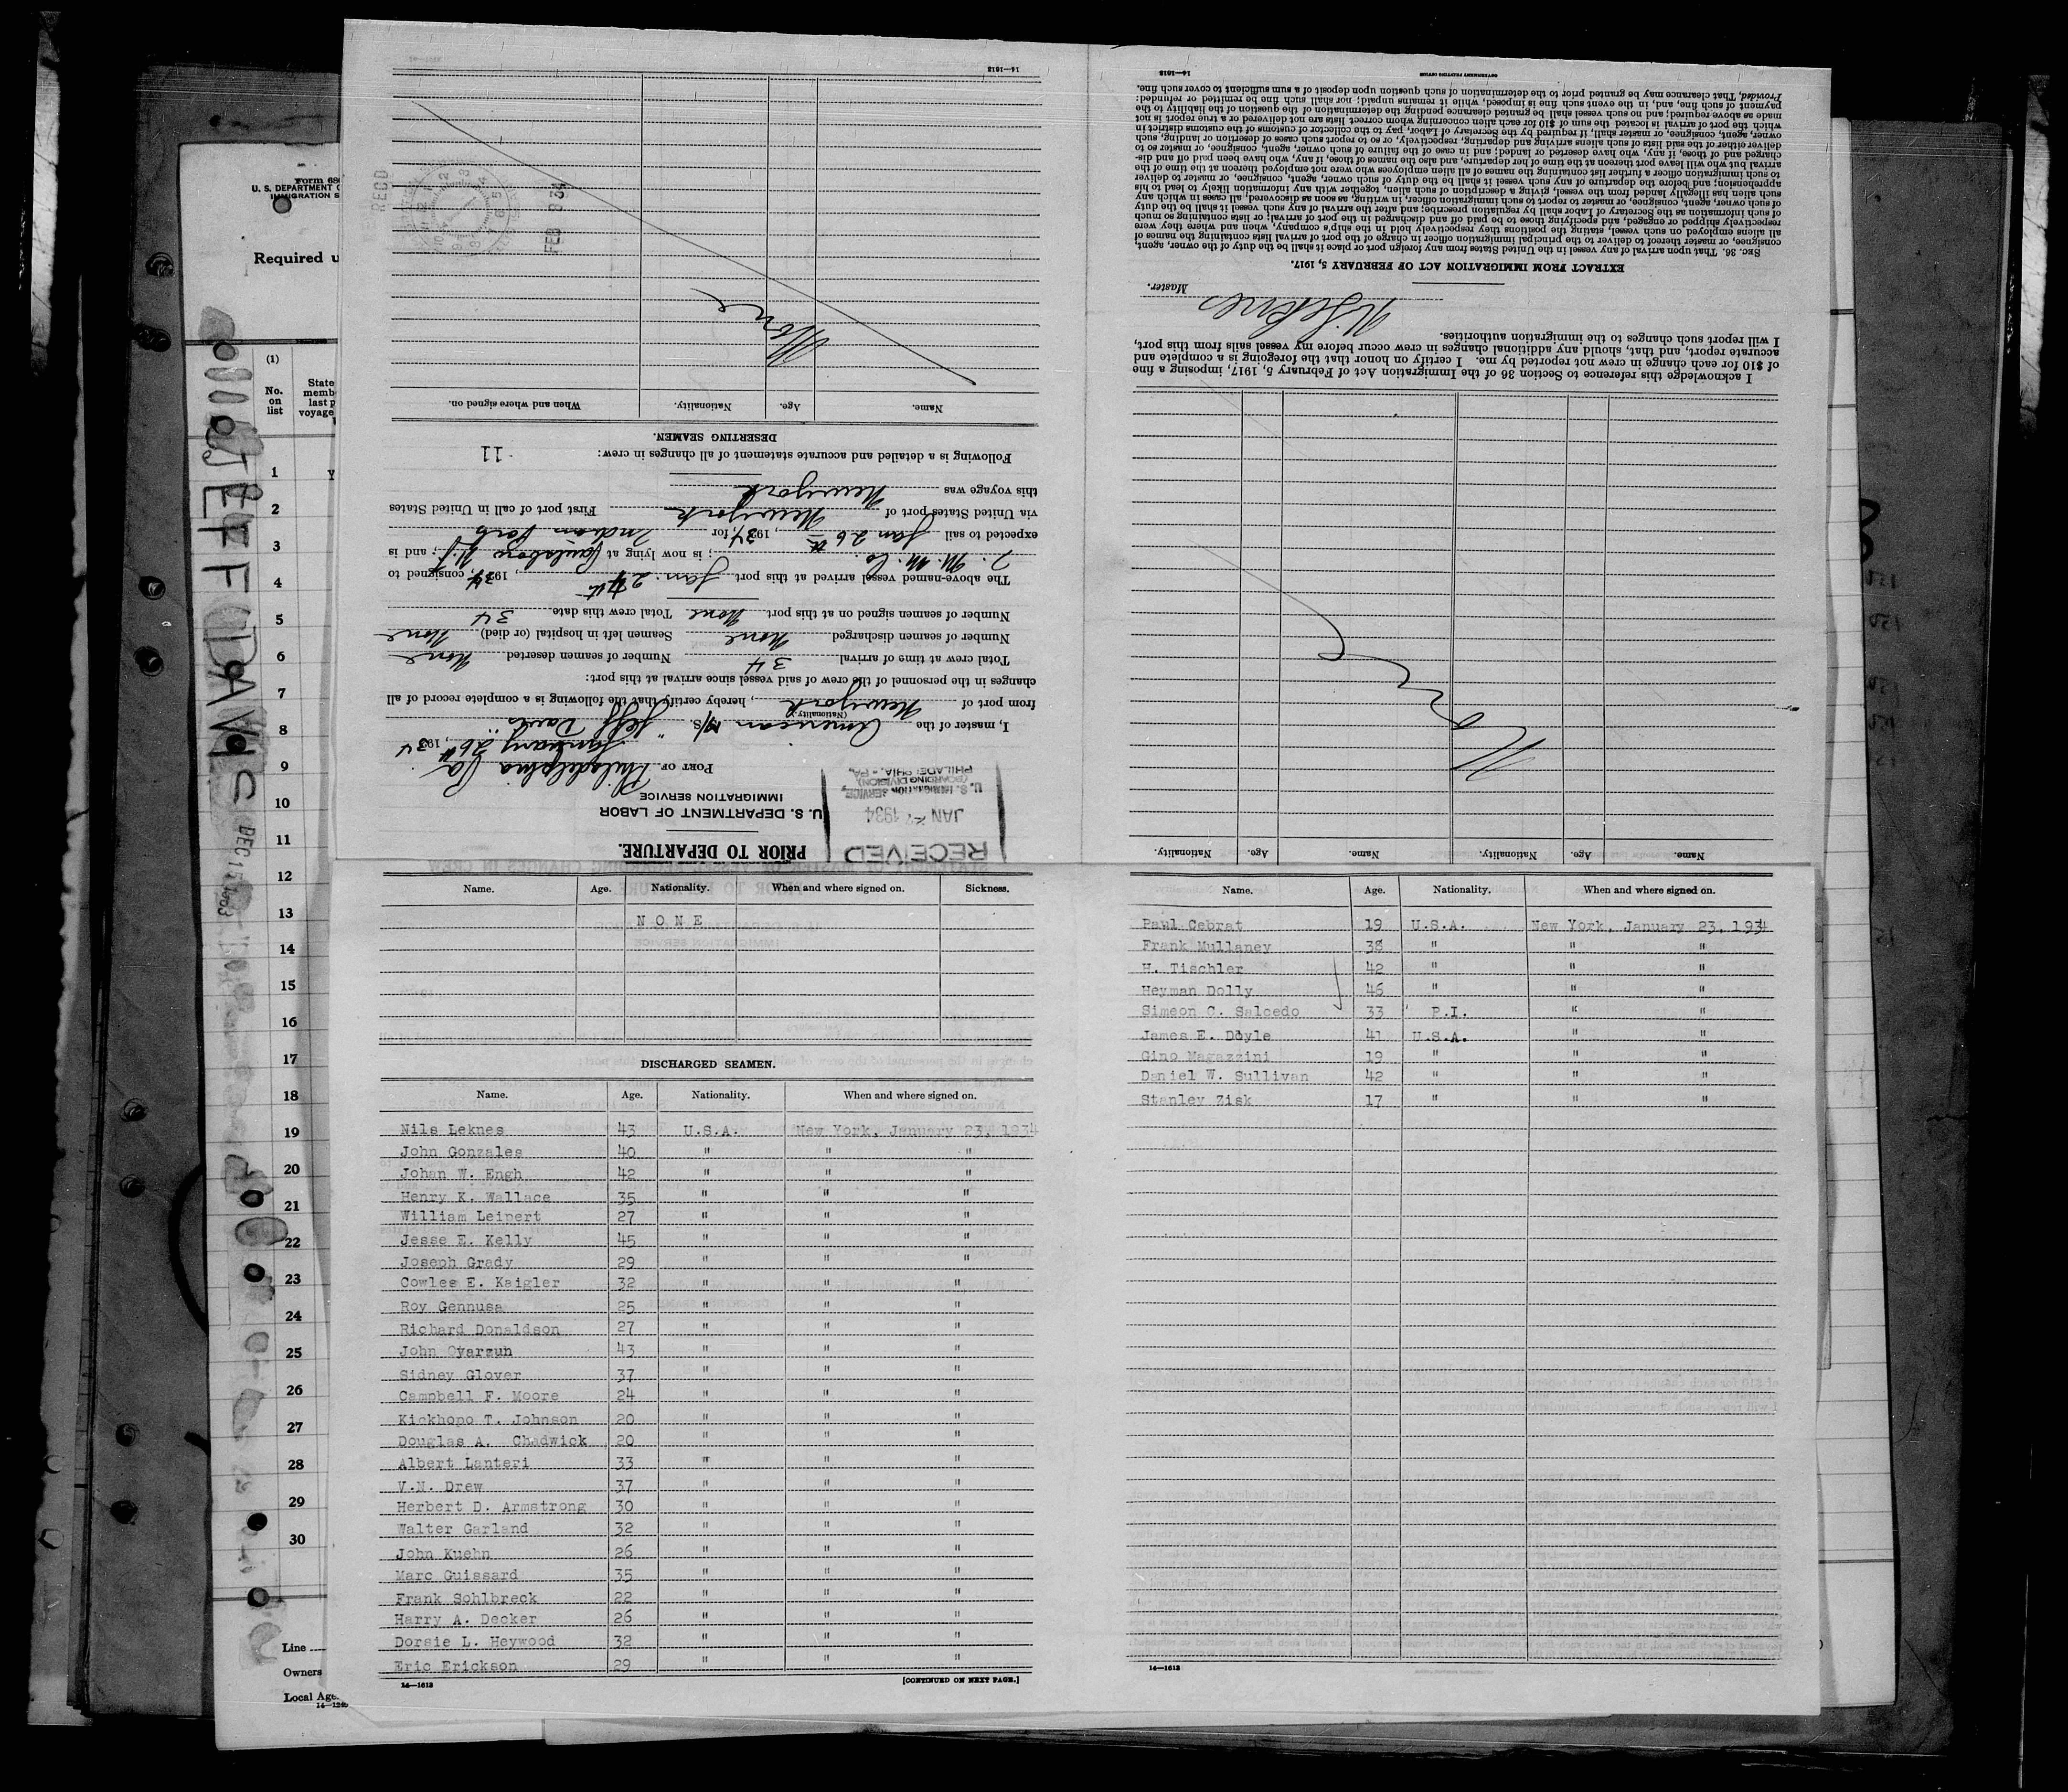 Form 680
U. S. DEPARTMENT O
IMMIGRATION S
Required u
(1)
No. on list
State
memb
last p
voyage
1
2
3
4
5
6
7
8
9
10
11
12
13
14
15
16
17
18
19
20
21
22
23
24
25
26
27
28
29
30
Line
Owners
Local Age
14—1240
JEFF DAVIS
DEC 15 1903
PRIOR TO DEPARTURE.
RECEIVED
JAN 27 1934
U. S. IMMIGRATION SERVICE
(BOARDING DIVISION)
PHILADELPHIA - PA.
U. S. DEPARTMENT OF LABOR
IMMIGRATION SERVICE
PORT OF Philadelphia Pa
January 26th, 1934
I, master of the American M/S "Jeff Davis"
(Nationality)
from port of Newyork, hereby certify that the following is a complete record of all
changes in the personnel of the crew of said vessel since arrival at this port:
Total crew at time of arrival 34 Number of seamen deserted None
Number of seamen discharged None Seamen left in hospital (or died) None
Number of seamen signed on at this port None Total crew this date 34
The above-named vessel arrived at this port Jan. 24th, 1934, consigned to
M. M. Co.; is now lying at Paulsboro N.J; and is
expected to sail Jan 26th, 1934, for Indian Pass
via United States port of Newyork First port of call in United States
this voyage was Newyork
Following is a detailed and accurate statement of all changes in crew: 11
DESERTING SEAMEN.
Name. Age. Nationality. When and where signed on.
None
REC'D
FEB 8 34
14—1613
Name. Age. Nationality. Name. Age. Nationality.
None
I acknowledge this reference to Section 36 of the Immigration Act of February 5, 1917, imposing a fine
of $10 for each change in crew not reported by me. I certify on honor that the foregoing is a complete and
accurate report, and that, should any additional changes in crew occur before my vessel sails from this port,
I will report such changes to the immigration authorities.
N. Leknes
Master.
EXTRACT FROM IMMIGRATION ACT OF FEBRUARY 5, 1917.
SEC. 36. That upon arrival of any vessel in the United States from any foreign port or place it shall be the duty of the owner, agent,
consignee, or master thereof to deliver to the principal immigration officer in charge of the port of arrival lists containing the names of
all aliens employed on such vessel, stating the positions they respectively hold in the ship's company, when and where they were
respectively shipped or engaged, and specifying those to be paid off and discharged in the port of arrival; or lists containing so much
of such information as the Secretary of Labor shall by regulation prescribe; and after the arrival of any such vessel it shall be the duty
of such owner, agent, consignee, or master to report to such immigration officer, in writing, as soon as discovered, all cases in which any
such alien has illegally landed from the vessel, giving a description of such alien, together with any information likely to lead to his
apprehension; and before the departure of any such vessel it shall be the duty of such owner, agent, consignee, or master to deliver
to such immigration officer a further list containing the names of all alien employees who were not employed thereon at the time of the
arrival but who will leave port thereon at the time of her departure, and also the names of those, if any, who have been paid off and dis-
charged and of those, if any, who have deserted or landed; and in case of the failure of such owner, agent, consignee, or master so to
deliver either of the said lists of such aliens arriving and departing, respectively, or so to report such cases of desertion or landing, such
owner, agent, consignee, or master shall, if required by the Secretary of Labor, pay to the collector of customs of the customs district in
which the port of arrival is located the sum of $10 for each alien concerning whom correct lists are not delivered or a true report is not
made as above required; and no such vessel shall be granted clearance pending the determination of the question of the liability to the
payment of such fine, and, in the event such fine is imposed, while it remains unpaid; nor shall such fine be remitted or refunded:
Provided, That clearance may be granted prior to the determination of such question upon deposit of a sum sufficient to cover such fine.
GOVERNMENT PRINTING OFFICE
14—1613
Name. Age. Nationality. When and where signed on. Sickness.
N O N E
DISCHARGED SEAMEN.
Name. Age. Nationality. When and where signed on.
Nils Leknes 43 U.S.A. New York, January 23, 1934
John Gonzales 40 " " "
Johan W. Engh 42 " " "
Henry K. Wallace 35 " " "
William Leipert 27 " " "
Jesse E. Kelly 45 " " "
Joseph Grady 29 " " "
Cowles E. Kaigler 32 " " "
Roy Gennusa 25 " " "
Richard Donaldson 27 " " "
John Oyarzun 43 " " "
Sidney Glover 37 " " "
Campbell F. Moore 24 " " "
Kickhopo T. Johnson 20 " " "
Douglas A. Chadwick 20 " " "
Albert Lanteri 33 " " "
V.N. Drew 37 " " "
Herbert D. Armstrong 30 " " "
Walter Garland 32 " " "
John Kuehn 26 " " "
Marc Guissard 35 " " "
Frank Sohlbreck 22 " " "
Harry A. Decker 26 " " "
Dorsie L. Heywood 32 " " "
Eric Erickson 29 " " "
14—1613
[CONTINUED ON NEXT PAGE.]
Name. Age. Nationality. When and where signed on.
Paul Cebrat 19 U.S.A. New York, January 23, 1934
Frank Mullaney 38 " " "
H. Tischler 42 " " "
Heyman Dolly 46 " " "
Simeon C. Salcedo 33 P.I. " "
James E. Doyle 41 U.S.A. " "
Gino Magazzini 19 " " "
Daniel W. Sullivan 42 " " "
Stanley Zisk 17 " " "
14—1613